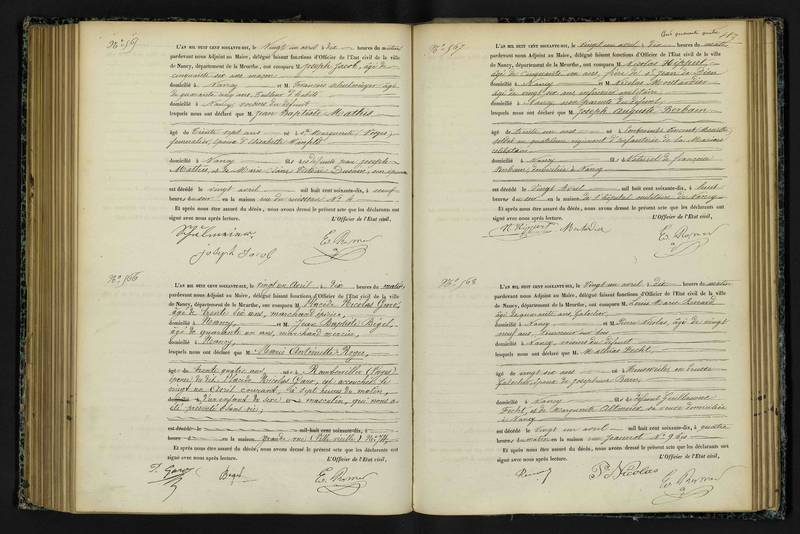 Nº 565
L'AN MIL HUIT CENT SOIXANTE-DIX, le vingt un avril à dix heures du matin
pardevant nous Adjoint au Maire, délégué faisant fonctions d'Officier de l'Etat civil de la ville
de Nancy, département de la Meurthe, ont comparu M. Joseph Jacob, âgé de
cinquante six ans, maçon
domicilié à Nancy et M. François
âgé de quarante cinq ans, tailleur d'habits
domicilié à Nancy, voisins du défunt
lesquels nous ont déclaré que M. Jean Baptiste Mathis
âgé de trente sept ans né à Ste Marguerite (Vosges)
journalier, époux d'Elisabeth
domicilié à Nancy fils de défunts Jean Joseph
Mathis, et de Marie Anne Victoire
est décédé le vingt avril mil huit cent soixante-dix, à neuf
heures du soir en la maison rue du ruisseau Nº 4
Et après nous être assuré du décès, nous avons dressé le présent acte que les déclarants ont
signé avec nous après lecture. L'Officier de l'Etat civil,
Joseph Jacob
Nº 566
L'AN MIL HUIT CENT SOIXANTE-DIX, le vingt un avril à dix heures du matin
pardevant nous Adjoint au Maire, délégué faisant fonctions d'Officier de l'Etat civil de la ville
de Nancy, département de la Meurthe, ont comparu M. Placide Nicolas
âgé de trente six ans, marchand épicier
domicilié à Nancy et M. Jean Baptiste Bégel,
âgé de quarante un ans, marchand mercier,
domicilié à Nancy
lesquels nous ont déclaré que M. Marie Antoinette Roger
âgée de trente quatre ans née à Rambervillers (Vosges)
épouse du dit Placide Nicolas est accouchée le
vingt un avril courant, à sept heures du matin,
d'un enfant de sexe masculin, qui nous a
été présenté sans vie,
est décédé le mil huit cent soixante-dix, à
heures en la maison grande rue (Ville vieille) Nº 74
Et après nous être assuré du décès, nous avons dressé le présent acte que les déclarants ont
signé avec nous après lecture. L'Officier de l'Etat civil,
Bégel
Cent quarante quatre
Nº 567
L'AN MIL HUIT CENT SOIXANTE-DIX, le vingt un avril à dix heures du matin
pardevant nous Adjoint au Maire, délégué faisant fonctions d'Officier de l'Etat civil de la ville
de Nancy, département de la Meurthe, ont comparu M. Nicolas Hippert,
âgé de cinquante un ans, frère de St Jean de Dieu
domicilié à Nancy et M. Nicolas
âgé de vingt six ans infirmier militaire
domicilié à Nancy non parents du défunt
lesquels nous ont déclaré que M. Joseph Auguste
âgé de trente un ans né à
soldat au quatrième régiment d'infanterie de la Marine
célibataire
domicilié à Nancy fils naturel de Françoise
domiciliée à Nancy
est décédé le vingt avril mil huit cent soixante-dix, à huit
heures du soir en la maison de l'hôpital militaire de Nancy
Et après nous être assuré du décès, nous avons dressé le présent acte que les déclarants ont
signé avec nous après lecture. L'Officier de l'Etat civil,
N. Hippert
Nº 568
L'AN MIL HUIT CENT SOIXANTE-DIX, le vingt un avril à dix heures du matin
pardevant nous Adjoint au Maire, délégué faisant fonctions d'Officier de l'Etat civil de la ville
de Nancy, département de la Meurthe, ont comparu M. Louis Marie
âgé de quarante ans
domicilié à Nancy et M. Pierre Nicolas, âgé de vingt
neuf ans, tourneur sur bois
domicilié à Nancy, voisins du défunt
lesquels nous ont déclaré que M. Mathias Hecht
âgé de vingt six ans né à
époux de Joséphine
domicilié à Nancy fils de défunt Guillaume
Hecht, et de Marguerite sa veuve domiciliée
à Nancy
est décédé le vingt un avril mil huit cent soixante-dix, à quatre
heures du matin en la maison rue Jeannot Nº 9 bis
Et après nous être assuré du décès, nous avons dressé le présent acte que les déclarants ont
signé avec nous après lecture. L'Officier de l'Etat civil,
Nicolas